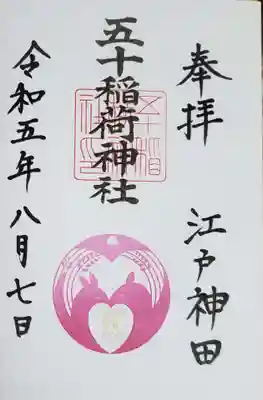 奉拝
江戸神田
五十稲荷神社
令和五年八月七日